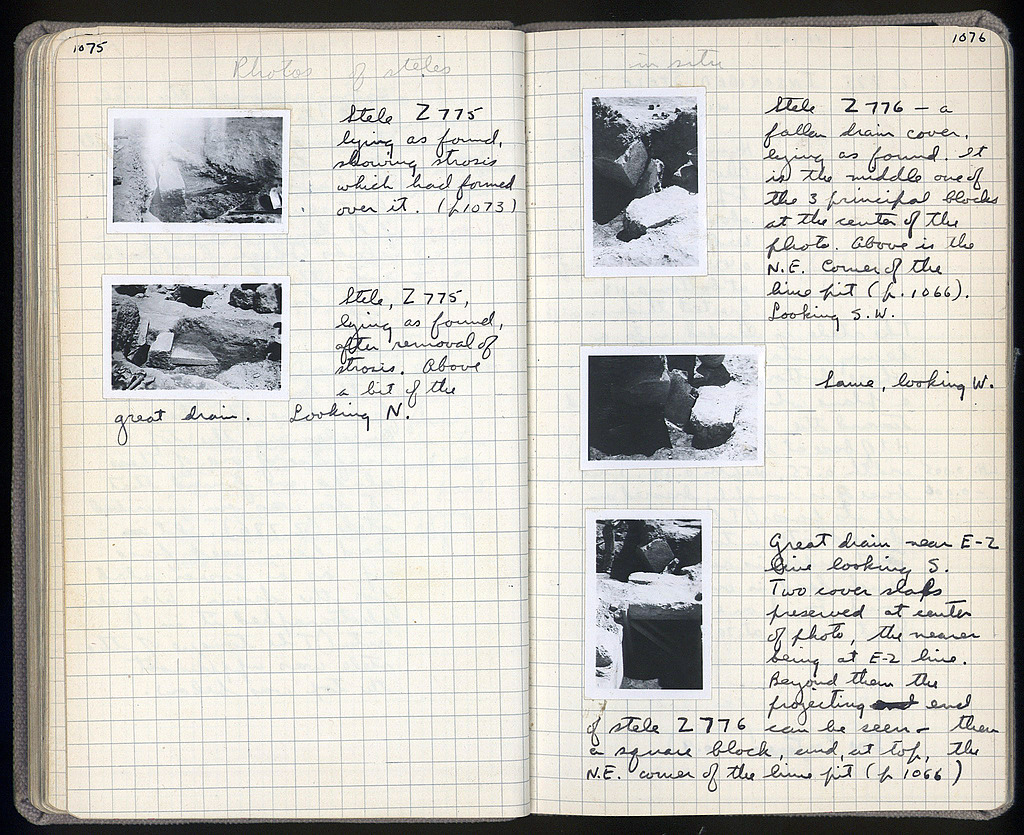 1075
Photos of steles
Stele Z 775
lying as found,
showing strosis
which had formed
over it. (p1073)
Stele, Z 775,
lying as found,
after removal of
strosis. Above
a bit of the
great drain. Looking N.
1076
in situ
Stele Z 776 - a
fallen drain cover,
lying as found. It
is the middle one of
the 3 principal blocks
at the center of the
photo. Above is the
N.E. Corner of the
lime pit (p.1066).
Looking S.W.
Same, looking W.
Great drain near E-Z
line looking S.
Two cover slabs
preserved at center
of photo, the nearer
being at E-Z line.
Beyond them the
projecting end
of stele Z 776 can be seen - then
a square block, and, at top, the
N.E. corner of the lime pit (p 1066)